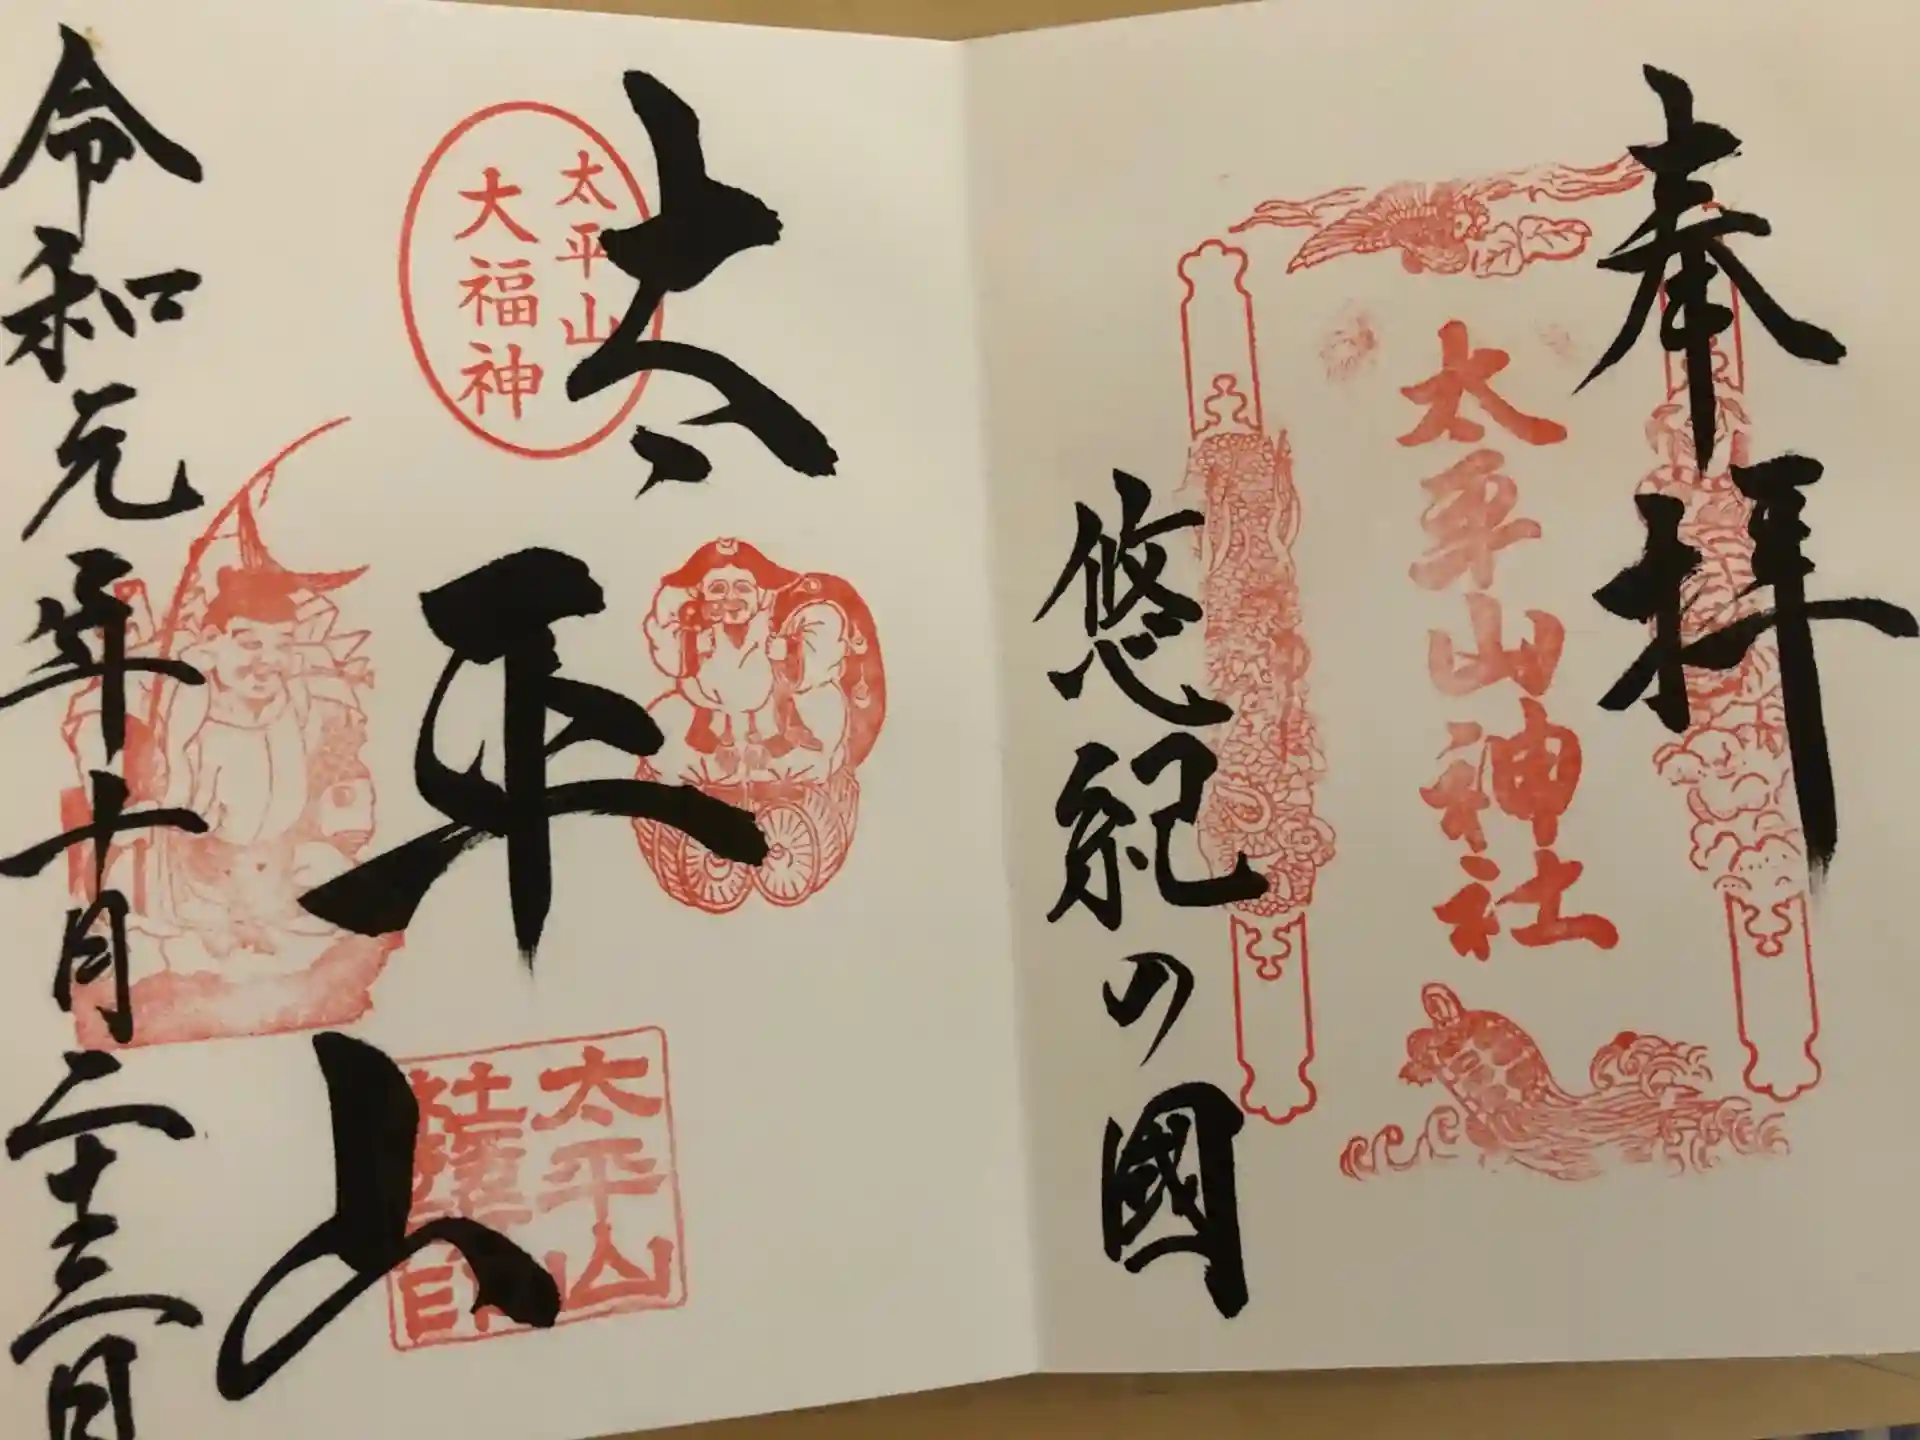 奉拝
太平山神社
悠紀の國
太平山
太平山
大福神
太平山
社
印
令和元年十月二十三日